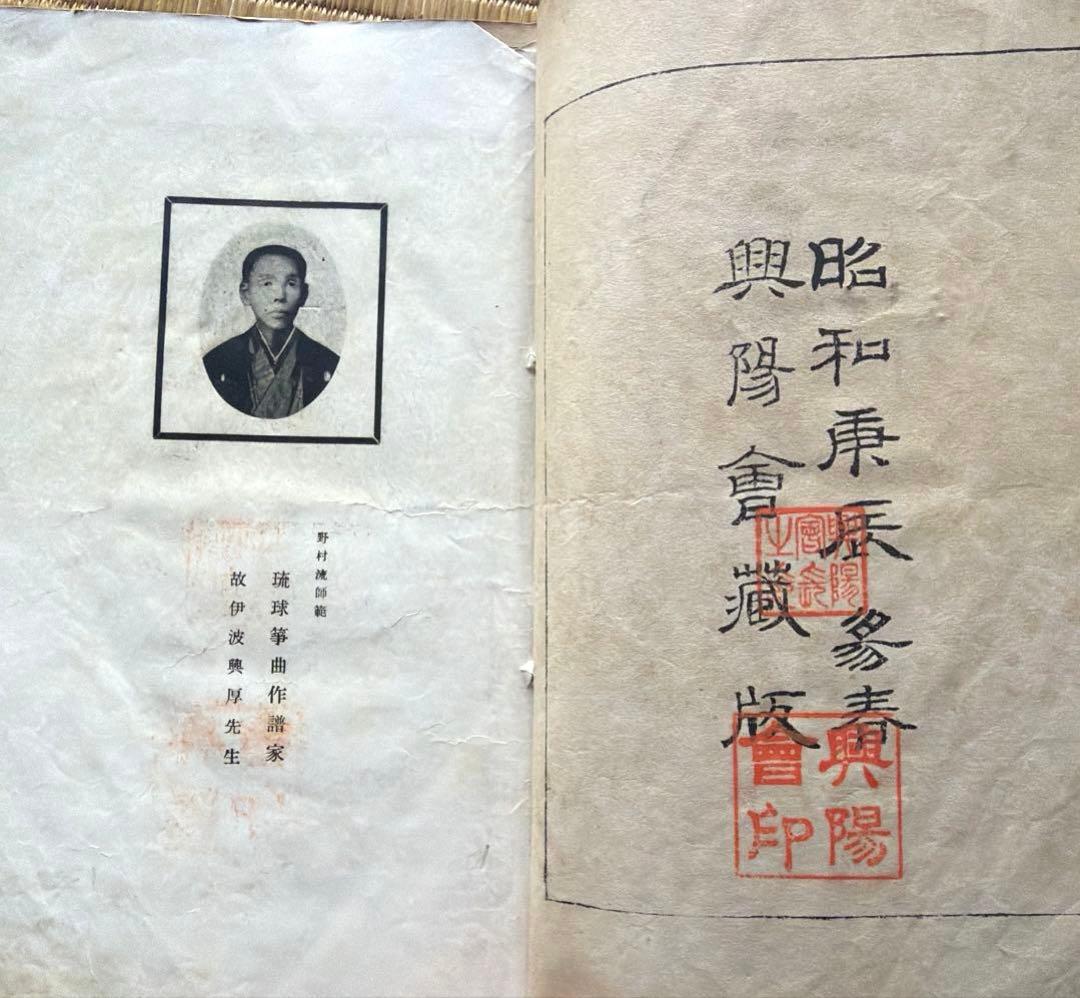 昭和庚辰春
興陽會藏版
興陽
會長
之印
興陽
會印
野村流師範
琉球箏曲作譜家
故伊波興厚先生